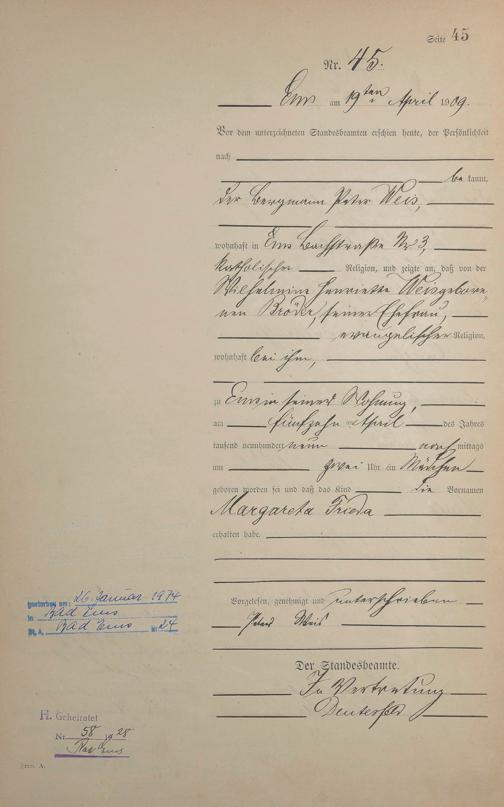 Seite 45
Nr. 45.
Ems am 19ten April 1909.
Vor dem unterzeichneten Standesbeamten erschien heute, der Persönlichkeit
nach
be kannt,
der Bergmann Peter Weis,
wohnhaft in Ems Bachstraße Nr 3,
katholischer Religion, und zeigte an, daß von der
Wilhelmine Henriette Weis gebore-
nen Bröder, seiner Ehefrau,
evangelischer Religion,
wohnhaft bei ihm,
zu Ems in seiner Wohnung,
am fünfzehn ten April des Jahres
tausend neunhundert neun nach mittags
um zwei Uhr ein Mädchen
geboren worden sei und daß das Kind die Vornamen
Margareta Frieda
erhalten habe.
Vorgelesen, genehmigt und unterschrieben
Peter Weis
Der Standesbeamte.
In Vertretung
gestorben am: 26. Januar 1974
in Bad Ems
St. A. Bad Ems Nr 24
H. Geheiratet
Nr. 58 1928
Bad Ems
Form. A.